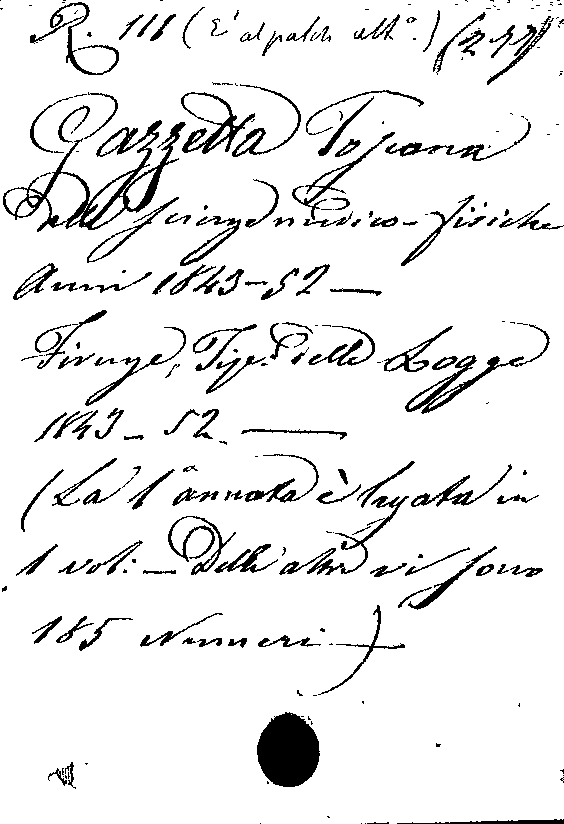 R. 111 (E' al palch. alto.) (2-77)
Gazzetta Toscana
delle scienze medico-fisiche
Anni 1843-52 —
Firenze, Tip. delle Logge
1843-52. —
(La 1ª annata è legata in
1 vol: — Delle altre vi sono
185 Numeri —)